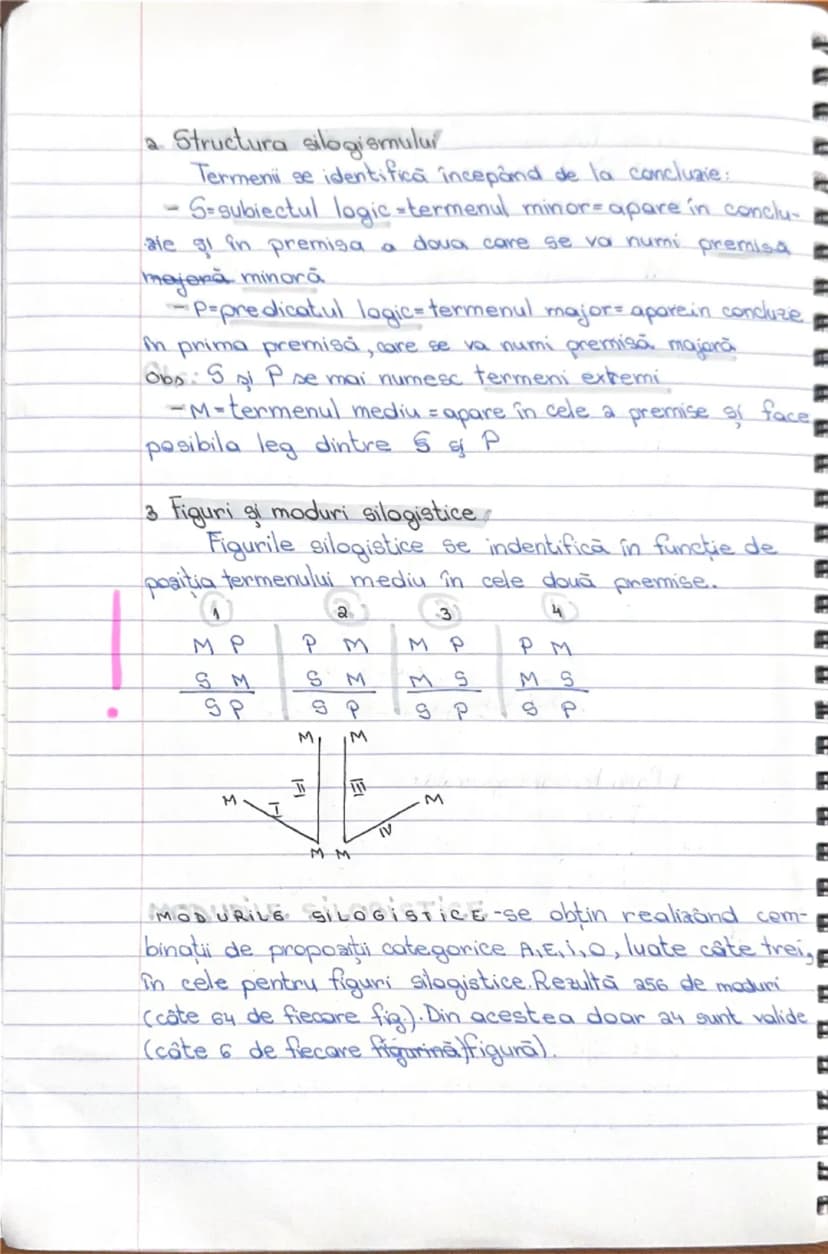 2 Structura silogismului
Termenii se identifică începând de la concluzie:
- S=subiectul logic=termenul minor=apare în conclu-
zie și în premisa a doua care se va numi premisa
majoră minoră
-P=predicatul logic=termenul major=apare in concluzie
în prima premisă, care se va numi premisă majoră
Obs: S și P se mai numesc termeni extremi
-M=termenul mediu=apare în cele 2 premise și face
posibila leg dintre S și P
3 Figuri și moduri silogistice
Figurile silogistice se indentifică în funcție de
poziția termenului mediu în cele două premise.
1 2 3 4
M P P M M P P M
S M S M M S M S
S P S P S P S P
M M
II III
M I IV M
M M
MODURILE SILOGISTICE-se obțin realizând com-
binații de propoziții categorice A,E,i,O, luate câte trei,
în cele pentru figuri silogistice. Rezultă 256 de moduri
(câte 64 de fiecare fig.). Din acestea doar 24 sunt valide
(câte 6 de fiecare figurină) figură).